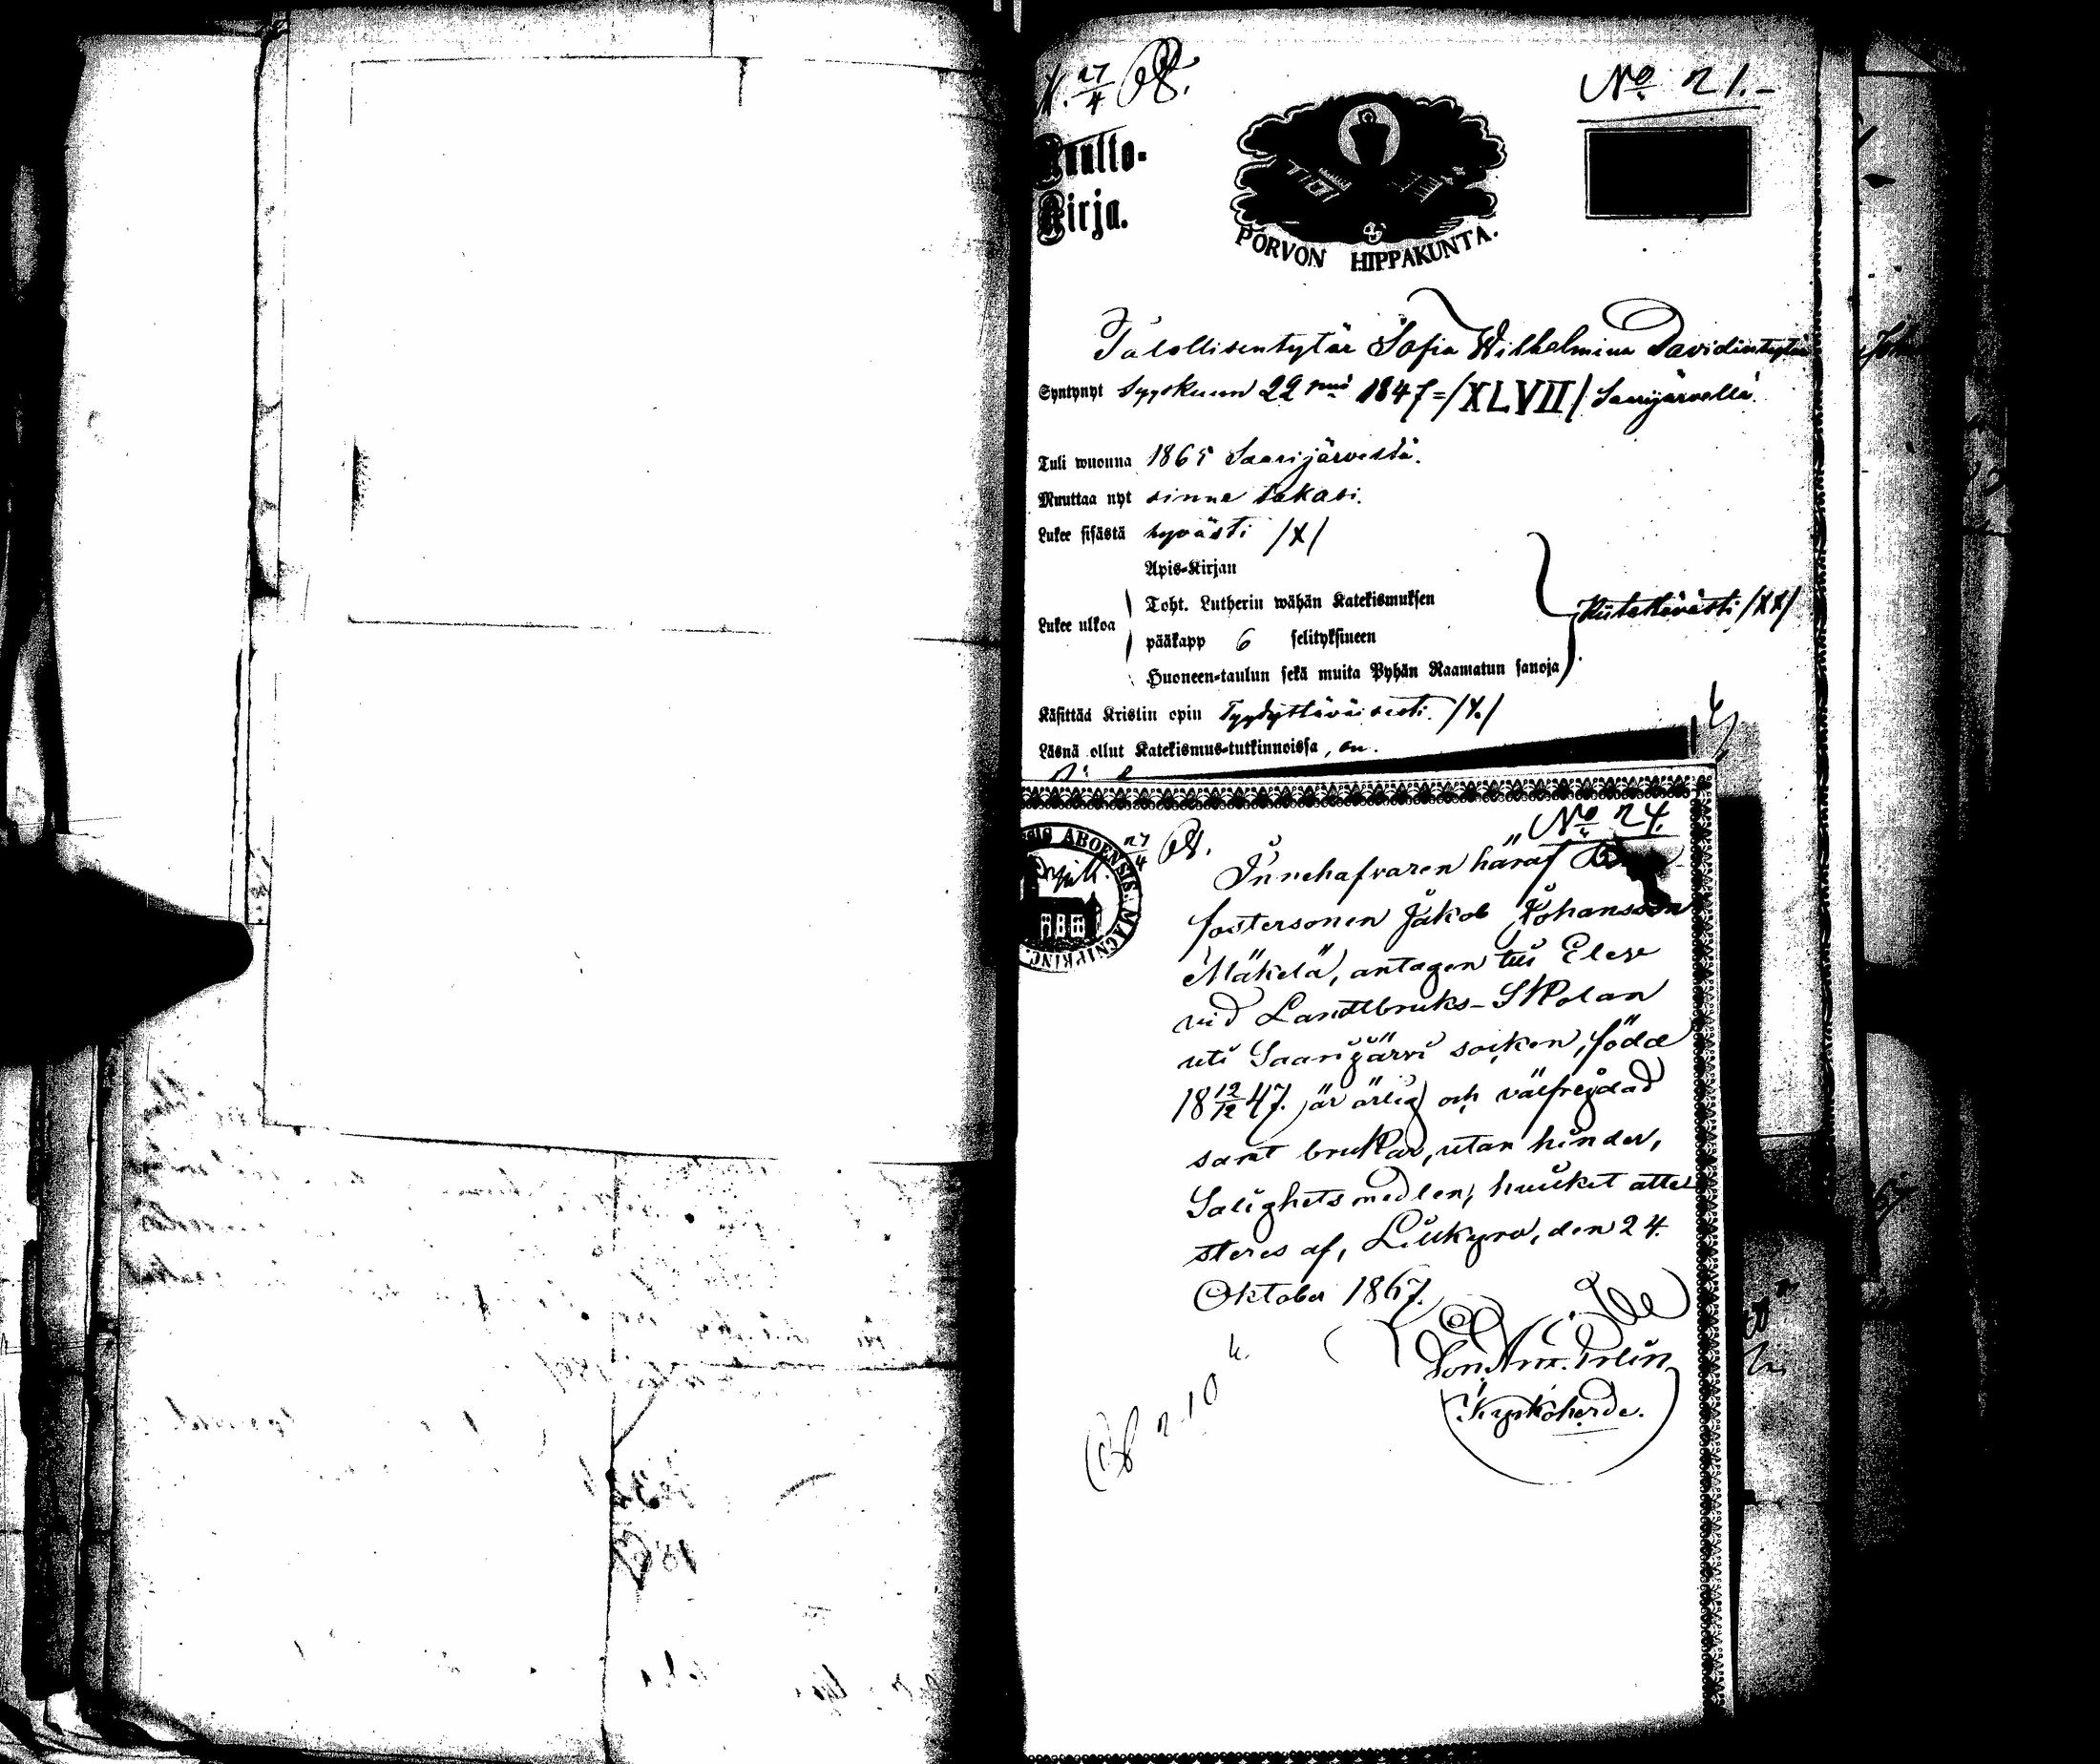 27/4 68.
No 21.-
Muutto-
Kirja.
PORVON HIPPAKUNTA.
Talollisentytär Sofia Wilhelmina Davidintytär
Syntynyt Syyskuun 22 1847=/XLVII/ Saarijärvellä.
Tuli wuonna 1865 Saarijärvestä.
Muuttaa nyt sinne takasi.
Lukee sisästä hyvästi /X/
Apis-Kirjan
Toht. Lutherin wähän Katekismuksen
Lukee ulkoa
Kiitettävästi /XX/
pääkapp 6 selityksineen
Huoneen-taulun sekä muita Pyhän Raamatun sanoja
Käsittää Kristin opin Tyydyttäväisesti. /X./
Läsnä ollut Katekismus-tutkinnoissa, on.
No 24.
27/4 68.
ABOENSIS. MAGN. PRINC.
Innehafvaren häraf
fostersonen Jakob Johansson
Mäkelä, antagen till Elev
vid Landtbruks-Skolan
uti Saarijärvi socken, född
18 12/12 47. är ärlig och välfrejdad
samt brukar, utan hinder,
Salighetsmedlen, hvilket atte-
steres af, Lillkyro, den 24.
Oktober 1867.
Kyrkoherde.
n 10